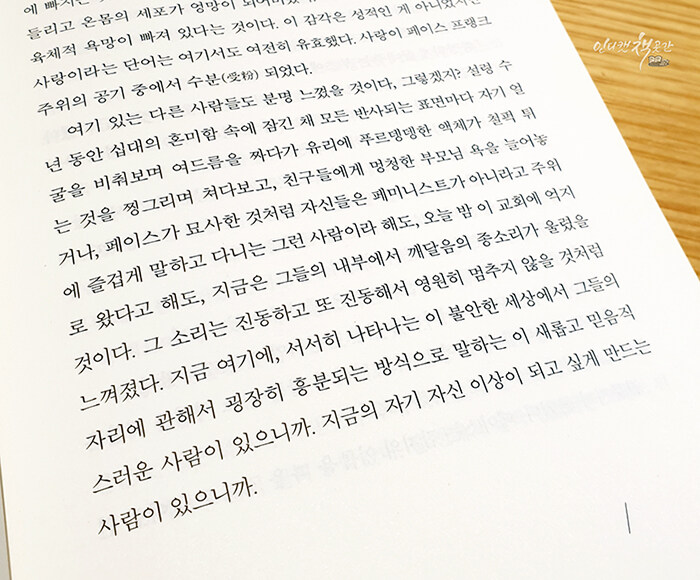 에 빠지는
들리고 온몸의 세포가 엉망이 되어버렸
육체적 욕망이 빠져 있다는 것이다. 이 감각은 성적인 게 아니었지만
사랑이라는 단어는 여기서도 여전히 유효했다. 사랑이 페이스 프랭크
주위의 공기 중에서 수분(受粉) 되었다.
여기 있는 다른 사람들도 분명 느꼈을 것이다, 그렇겠지? 설령 수
년 동안 십대의 혼미함 속에 잠긴 채 모든 반사되는 표면마다 자기 얼
굴을 비춰보며 여드름을 짜다가 유리에 푸르뎅뎅한 액체가 철퍽 튀
는 것을 찡그리며 쳐다보고, 친구들에게 멍청한 부모님 욕을 늘어놓
거나, 페이스가 묘사한 것처럼 자신들은 페미니스트가 아니라고 주위
에 즐겁게 말하고 다니는 그런 사람이라 해도, 오늘 밤 이 교회에 억지
로 왔다고 해도, 지금은 그들의 내부에서 깨달음의 종소리가 울렸을
것이다. 그 소리는 진동하고 또 진동해서 영원히 멈추지 않을 것처럼
느껴졌다. 지금 여기에, 서서히 나타나는 이 불안한 세상에서 그들의
자리에 관해서 굉장히 흥분되는 방식으로 말하는 이 새롭고 믿음직
스러운 사람이 있으니까. 지금의 자기 자신 이상이 되고 싶게 만드는
사람이 있으니까.
인디캣책곳간